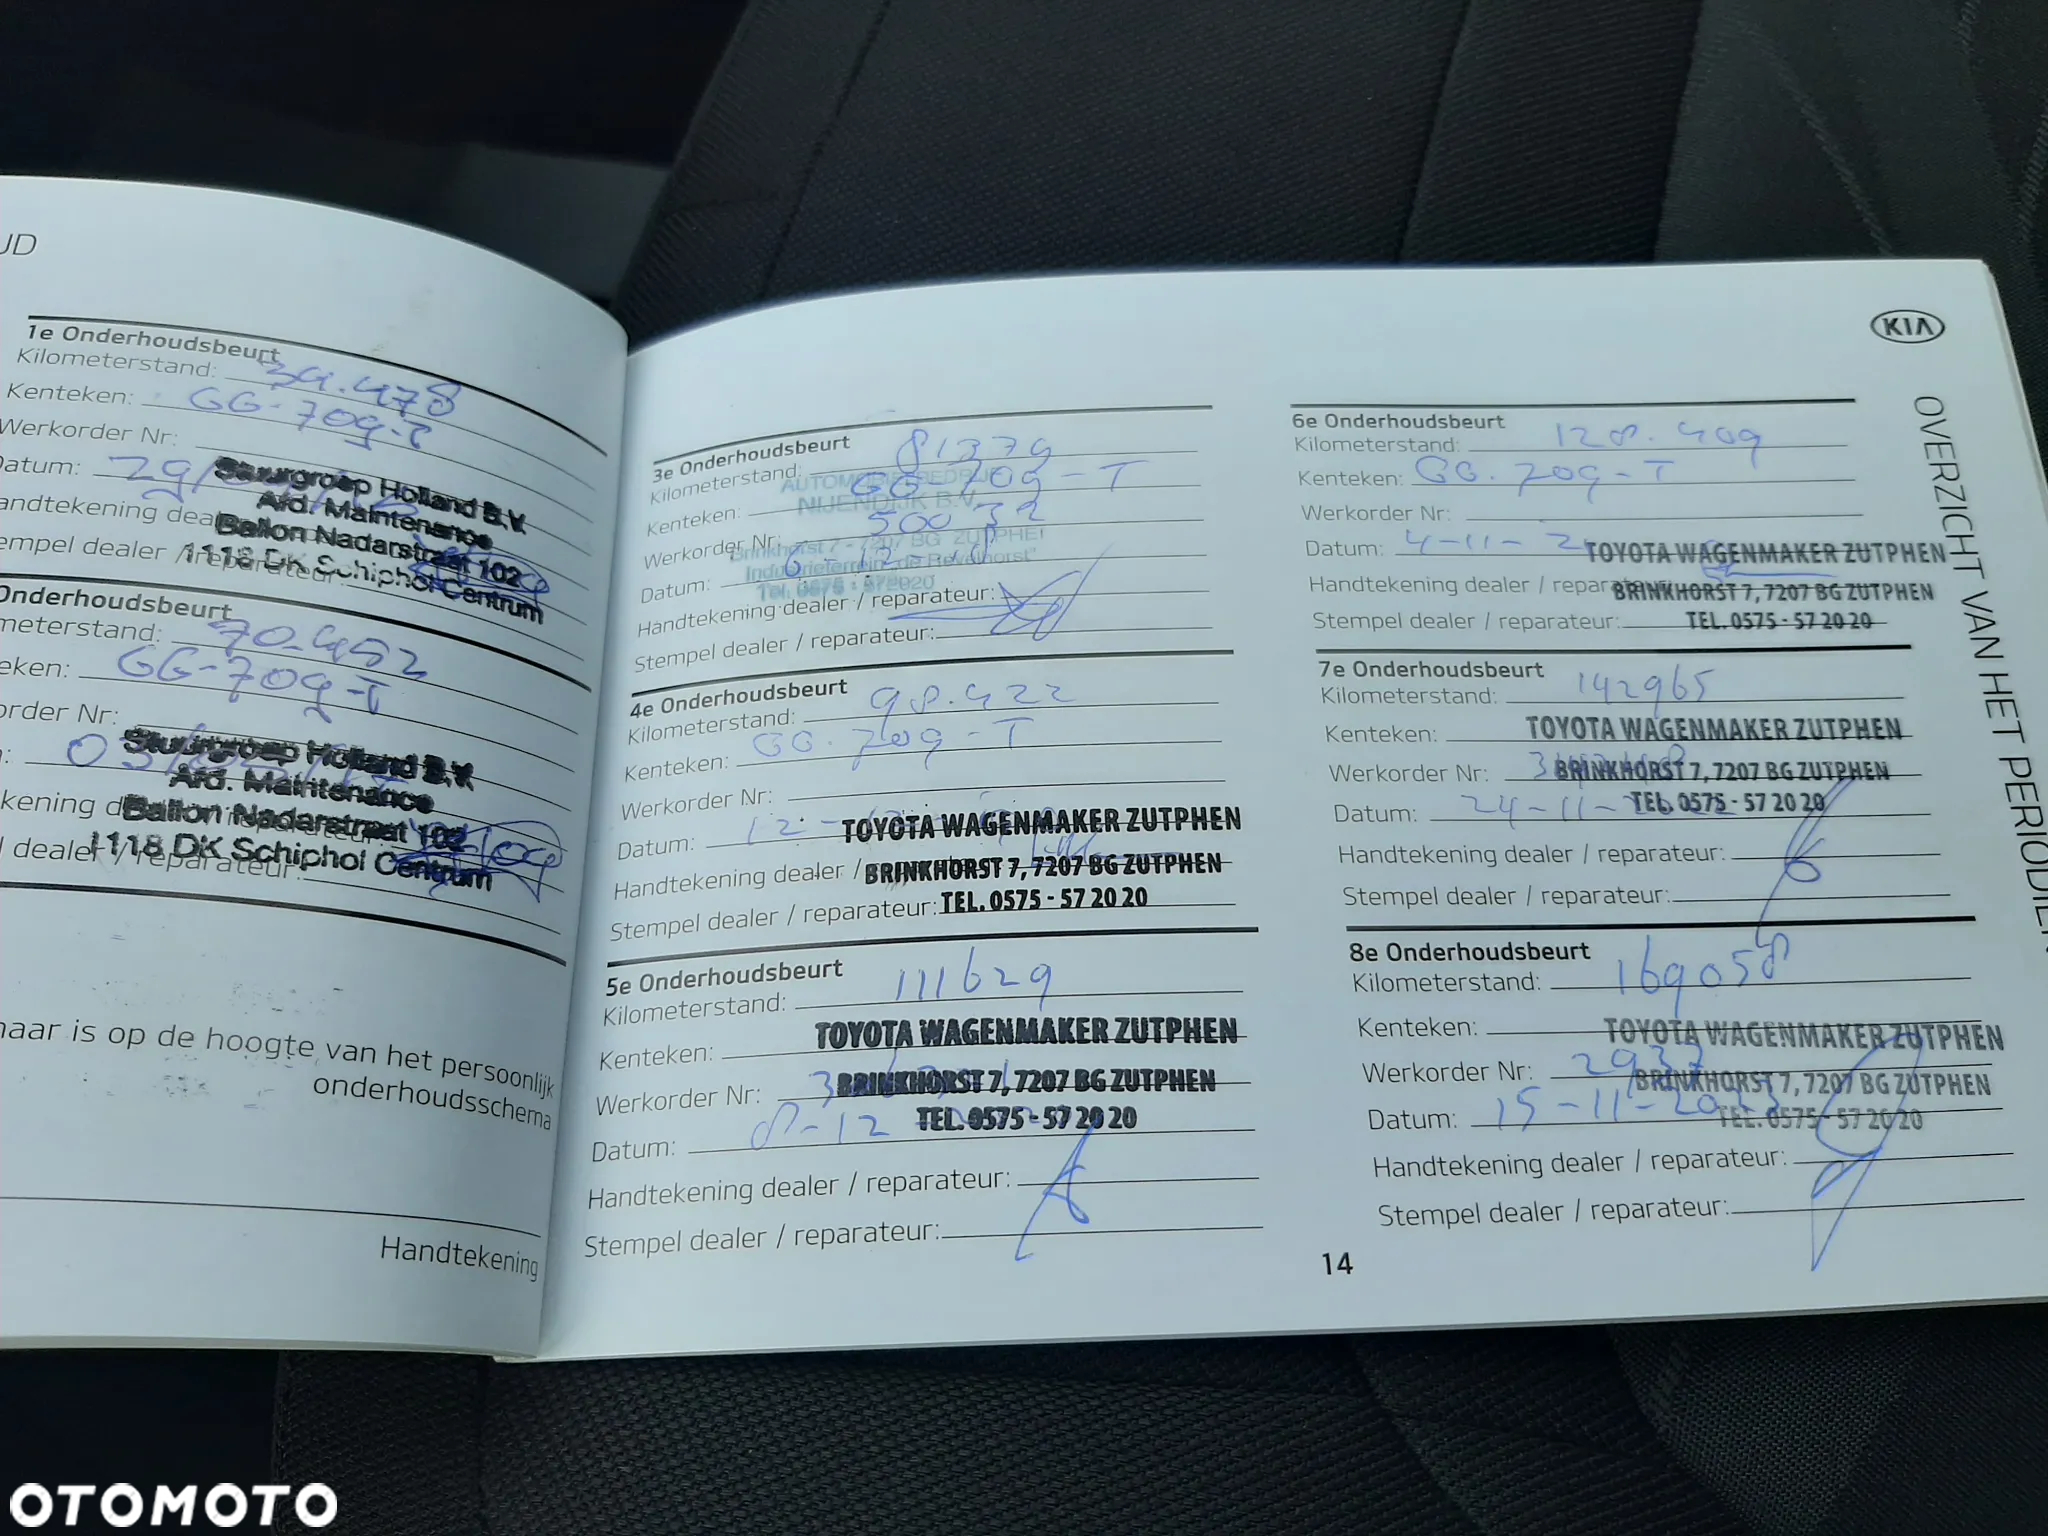 UD
1e Onderhoudsbeurt
Kilometerstand: 39.478
Kenteken: GG-709-T
Werkorder Nr:
Datum: 29/
Handtekening dealer / reparateur:
Stuurgroep Holland B.V.
Afd. Maintenance
Ballon Nadarstraat 102
1118 DK Schiphol Centrum
Onderhoudsbeurt
meterstand: 70.452
eken: GG-709-T
order Nr:
03/
Stuurgroep Holland B.V.
Afd. Maintenance
Ballon Nadarstraat 102
1118 DK Schiphol Centrum
kening dealer / reparateur:
l dealer / reparateur:
naar is op de hoogte van het persoonlijk
onderhoudsschema
Handtekening
3e Onderhoudsbeurt
Kilometerstand: 81379
Kenteken: GG 709-T
Werkorder Nr: 50032
Datum:
Handtekening dealer / reparateur:
Stempel dealer / reparateur:
AUTOMOBIELBEDRIJF
NIJENDIJK B.V.
Brinkhorst 7 - 7207 BG ZUTPHEN
Industrieterrein "de Revelhorst"
Tel. 0575 - 572020
4e Onderhoudsbeurt
Kilometerstand: 98.422
Kenteken: GG.709-T
Werkorder Nr:
Datum: 12-
Handtekening dealer /
Stempel dealer / reparateur:
TOYOTA WAGENMAKER ZUTPHEN
BRINKHORST 7, 7207 BG ZUTPHEN
TEL. 0575 - 57 20 20
5e Onderhoudsbeurt
Kilometerstand: 111629
Kenteken:
Werkorder Nr:
Datum: 8-12
Handtekening dealer / reparateur:
Stempel dealer / reparateur:
TOYOTA WAGENMAKER ZUTPHEN
BRINKHORST 7, 7207 BG ZUTPHEN
TEL. 0575 - 57 20 20
KIA
6e Onderhoudsbeurt
Kilometerstand: 128.409
Kenteken: GG.709-T
Werkorder Nr:
Datum: 4-11-2
Handtekening dealer / reparateur:
Stempel dealer / reparateur:
TOYOTA WAGENMAKER ZUTPHEN
BRINKHORST 7, 7207 BG ZUTPHEN
TEL. 0575 - 57 20 20
7e Onderhoudsbeurt
Kilometerstand: 142965
Kenteken:
Werkorder Nr:
Datum: 24-11-2022
Handtekening dealer / reparateur:
Stempel dealer / reparateur:
TOYOTA WAGENMAKER ZUTPHEN
BRINKHORST 7, 7207 BG ZUTPHEN
TEL. 0575 - 57 20 20
8e Onderhoudsbeurt
Kilometerstand: 169058
Kenteken:
Werkorder Nr: 2937
Datum: 15-11-2023
Handtekening dealer / reparateur:
Stempel dealer / reparateur:
TOYOTA WAGENMAKER ZUTPHEN
BRINKHORST 7, 7207 BG ZUTPHEN
TEL. 0575 - 57 20 20
14
OVERZICHT VAN HET PERIODIE
OTOMOTO